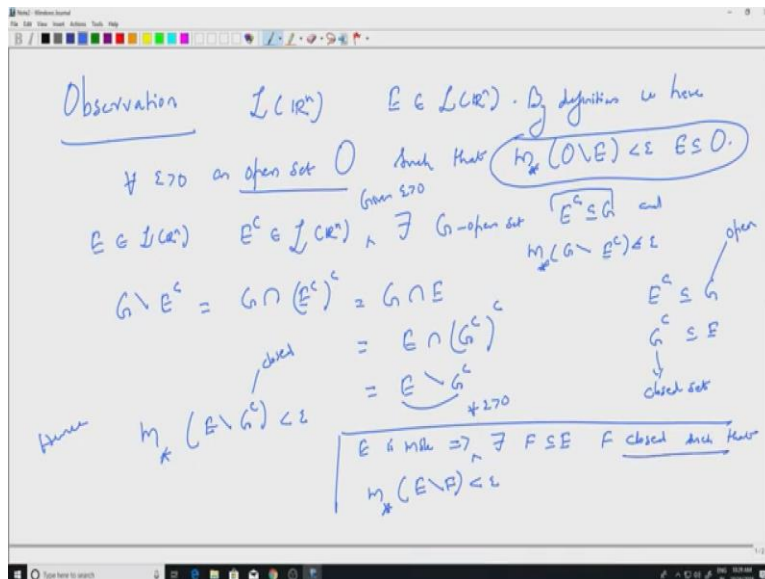 Note2 - Windows Journal
File Edit View Insert Actions Tools Help
Observation L(ℝⁿ) E ∈ L(ℝⁿ). By definition we have
∀ ε>0 an open set O such that m_*(O\E) < ε E ⊆ O.
E ∈ L(ℝⁿ) E^c ∈ L(ℝⁿ) ^ Given ε>0 ∃ G-open set E^c ⊆ G and
m_*(G \ E^c) < ε
G \ E^c = G ∩ (E^c)^c = G ∩ E
E^c ⊆ G open
= E ∩ (G^c)^c
G^c ⊆ E
= E \ G^c
closed set
Hence m_*(E \ G^c) < ε closed
E is mble ⇒ ^ ∀ ε>0 ∃ F ⊆ E F closed such that
m_*(E\F) < ε
1/2
Type here to search
ENG 10:29 AM